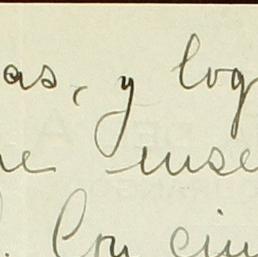 as, y log
ne inse
. Con cin